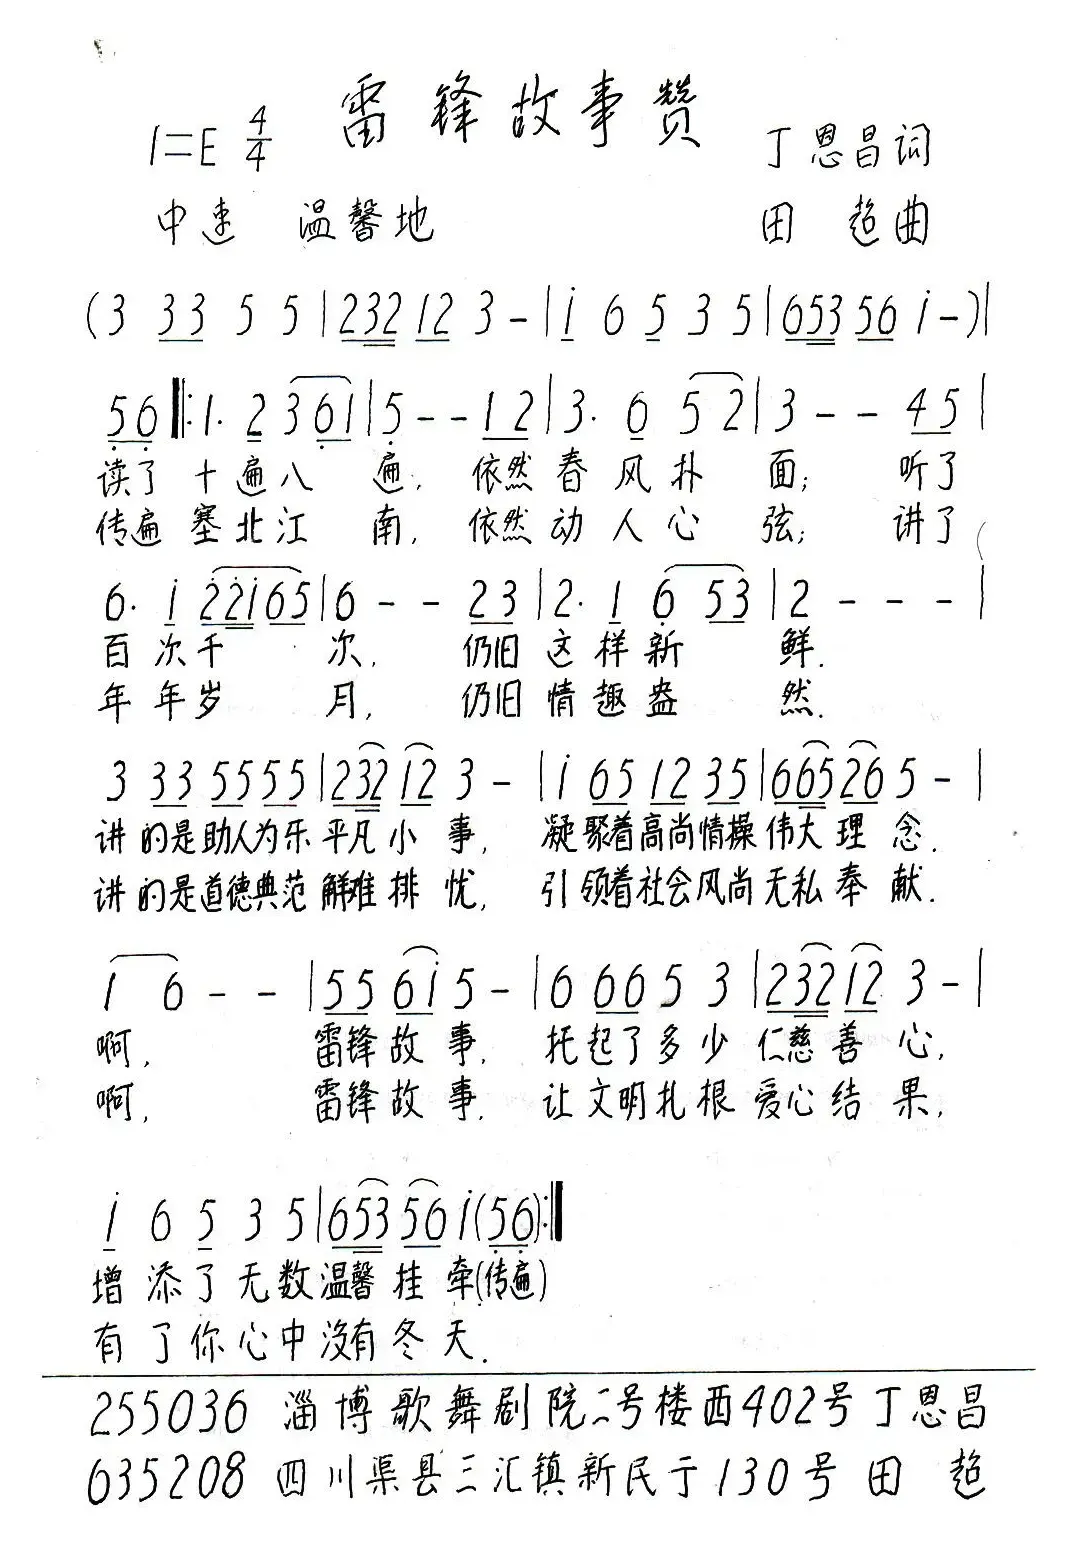 雷锋故事赞
1=E 4/4
丁恩昌词
中速 温馨地
田 超曲
(3 33 5 5 | 232 12 3 - | i 6 5 3 5 | 653 56 i -) |
56 ‖: 1. 2 3 61 | 5 - - 12 | 3. 6 5 2 | 3 - - 45 |
读了 十遍八 遍, 依然春风扑 面; 听了
传遍 塞北江 南, 依然动人心 弦; 讲了
6. i 22i65 | 6 - - 23 | 2. 1 6 53 | 2 - - - |
百次千 次, 仍旧这样新 鲜.
年年岁 月, 仍旧情趣盎 然.
3 33 5555 | 232 12 3 - | i 65 12 35 | 665 26 5 - |
讲的是助人为乐平凡小事, 凝聚着高尚情操伟大理念.
讲的是道德典范解难排忧, 引领着社会风尚无私奉献.
1 6 - - | 55 6i 5 - | 6 66 5 3 | 232 12 3 - |
啊, 雷锋故事, 托起了多少仁慈善心,
啊, 雷锋故事, 让文明扎根爱心结果,
i 6 5 3 5 | 653 56 i (56) :‖
增添了无数温馨挂牵(传遍)
有了你心中没有冬天.
255036 淄博歌舞剧院二号楼西402号丁恩昌
635208 四川渠县三汇镇新民于130号 田 超